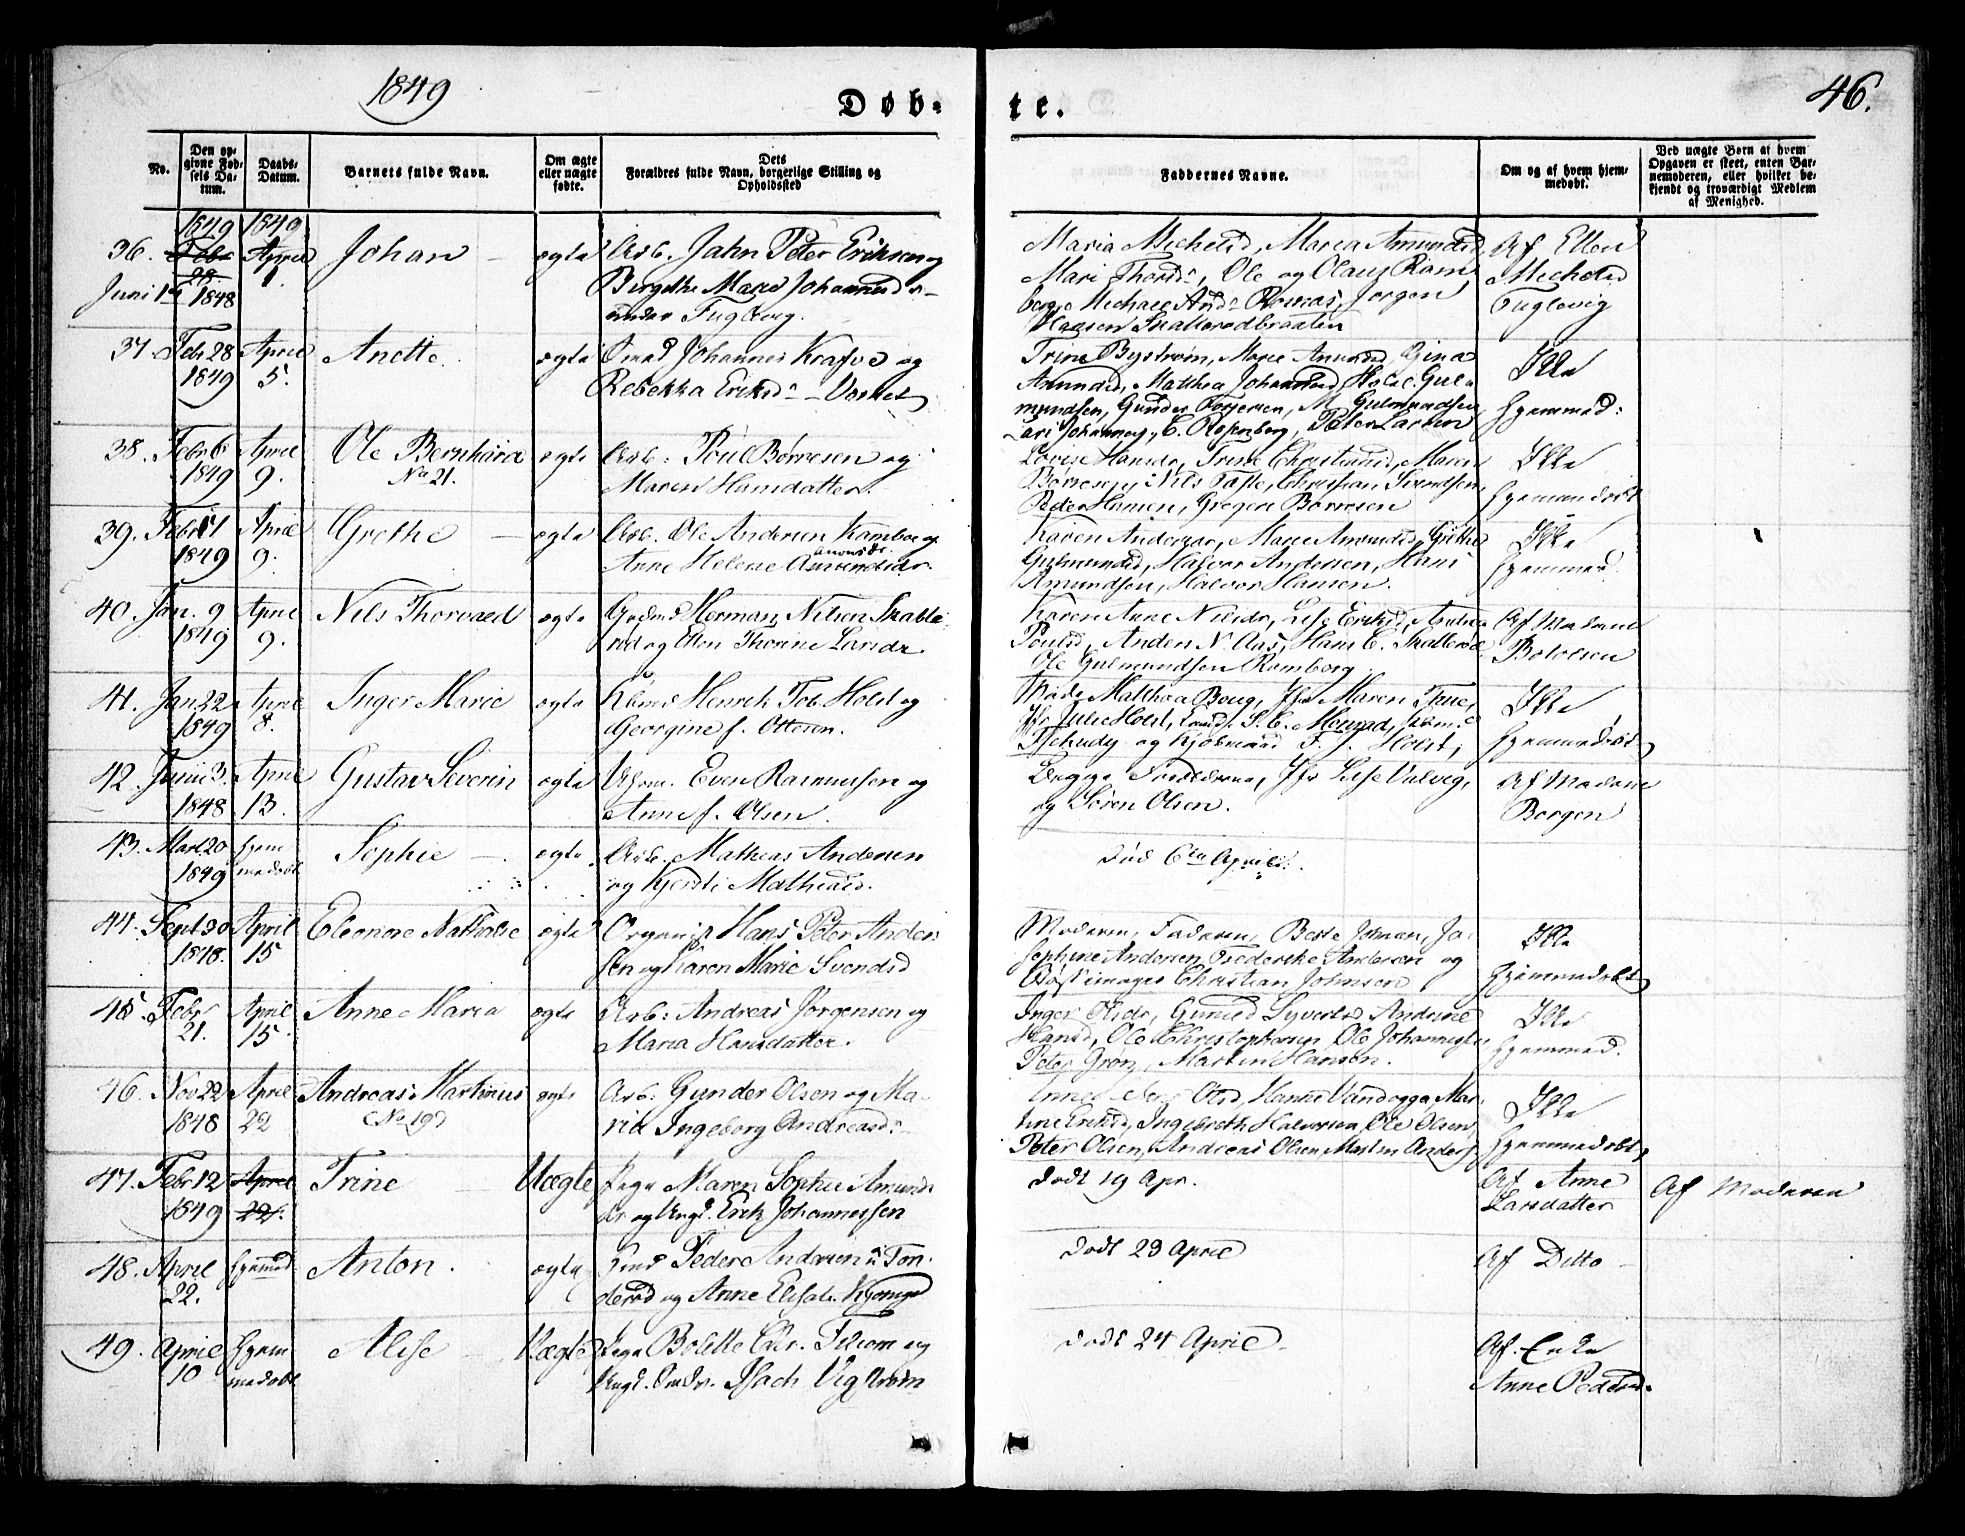 1849
Døb-
te.
46.
No.
Den op-
givne Fød-
sels Da-
tum.
Daabs-
Datum.
Barnets fulde Navn.
Om ægte
eller uægte
fødte.
Dets
Forældres fulde Navn, borgerlige Stilling og
Opholdssted
Faddernes Navne.
Om og af hvem hjem-
medøbt.
Ved uægte Børn af hvem
Opgaven er skeet, enten Bar-
nemoderen, eller hvilket be-
kjendt og troværdigt Medlem
af Menighed.
1849 1849
36. Febr 28 Juni 1848 April 1. Johan ægte Arb. Jahn Peter Eriksen og
Birgethe Marie Johannesd
under Fuglevig.
Maria Michelsd, Maren Amundsd,
Mari Thorsd, Ole og Olaus Ram
berg, Michael And Jørgen
Skallerødbraaten
Af Ellen
Michelsd
Fuglevig
37. Febr 28 1849 April 5. Anette. ægte Johannes og
Rebekka Eriksd
Trine Byström, Marie Amundsd, Gina
Amundsd, Mathea Johannesd, Gul
mundsen, Gunder M. Gulmundsen
Lars Johannes, C. Rosenberg, Peter Larsen
Ikke
hjemmed:
38. Febr 6 1849 April 9. Ole Bernhard
No 21.
ægte Arb: Poul Børresen og
Maren Hansdatter.
Lovise Hansdr, Trine Christensd, Maren
Børresen, Nils Christian Svendsen,
Peder Hansen, Gregers Børresen
Ikke
hjemmedøbt
39. Febr 17 1849 April 9. Grethe ægte Arb. Ole Andersen Rambrg
Anne Helene Amundsdr.
Karen Andersdr, Marie Amundsd, Grethe
Gulmundsd, Halvor Andersen, Hans
Amundsen, Halvor Hansen.
Ikke
hjemmed
40. Jan. 9 1849 April 9. Nils Thorvald ægte Herman Nilsen Skalle
rød og Ellen Thorine Larsdr.
Karen Anne Nilsdr, Lise Eriksd, Andrea
Poulsd, Anders N. Aas, Hans C. Skallerød
Ole Gulmundsen Ramberg
Af Madame
41. Jan 22 1849 April 8. Inger Marie ægte Henrik Tob. Holst og
Georgine f. Ottesen.
Mathea Boug, Jfr Maren Trine,
Jfr Julie Holst,
Tschudy og Kjøbmand F. J. Holst,
Ikke
hjemmedøbt
42. Junii 3. 1848 April 13. Gustav Severin ægte Even Rasmussen og
Anne f. Olsen.
Begge Forældrene, Jfr Lise
og Søren Olsen.
Af Madame
Borgen
43. Mart 20 1849 hjem
medøbt Sophie ægte. Arb. Mathias Andersen
og Kjersti Mathiasd.
død 6te April.
44. Sept 30 1848. April 15 Eleonore Nathalie ægte Organist Hans Peter Ander
sen og Karen Marie Svendsd
Moderen, Faderen, Beate Johnsen, Jo
sephine Andersen, Frederikke Andersen og
Christian Johnsen
Ikke
hjemmedøbt
45. Febr 21. April 15. Anne Maria ægte Arb: Andreas Jørgensen og
Maria Hansdatter.
Inger Olsdr, Gunild Syversd, Andrine
Hansd, Ole Christophersen, Ole Johannesen
Peter Grøn, Martin Hansen.
Ikke
hjemmed.
46. Nov 22 1848 April 22 Andreas Martinius
(No 19)
ægte Arb: Gunder Olsen og Ma
ria Ingeborg Andreasd
Anne Olsd, Hanne Mar
tine Eriksd, Ingebreth Halvorsen, Ole Olsen,
Peter Olsen, Andreas Olsen, Martin Anders
Ikke
hjemmedøbt,
47. Febr 12 1849 April 22. Trine Uægte Pige Maren Sophie Amunds
dr og Ungk. Erik Johannessen
Dødt 19 Apr.
Af Anne
Larsdatter
Af Moderen
48. April 22. hjemmed Anton. ægte Peder Andersen Ton
derød og Anne Elisab.
Dødt 23 April
Af Ditto
49. April 10 hjem
medøbt Alise Uægte Pige Bolette Chr. og
Ungk. Isach Vigstrøm
Dødt 24 April
Af Enke
Anne Pedersd.